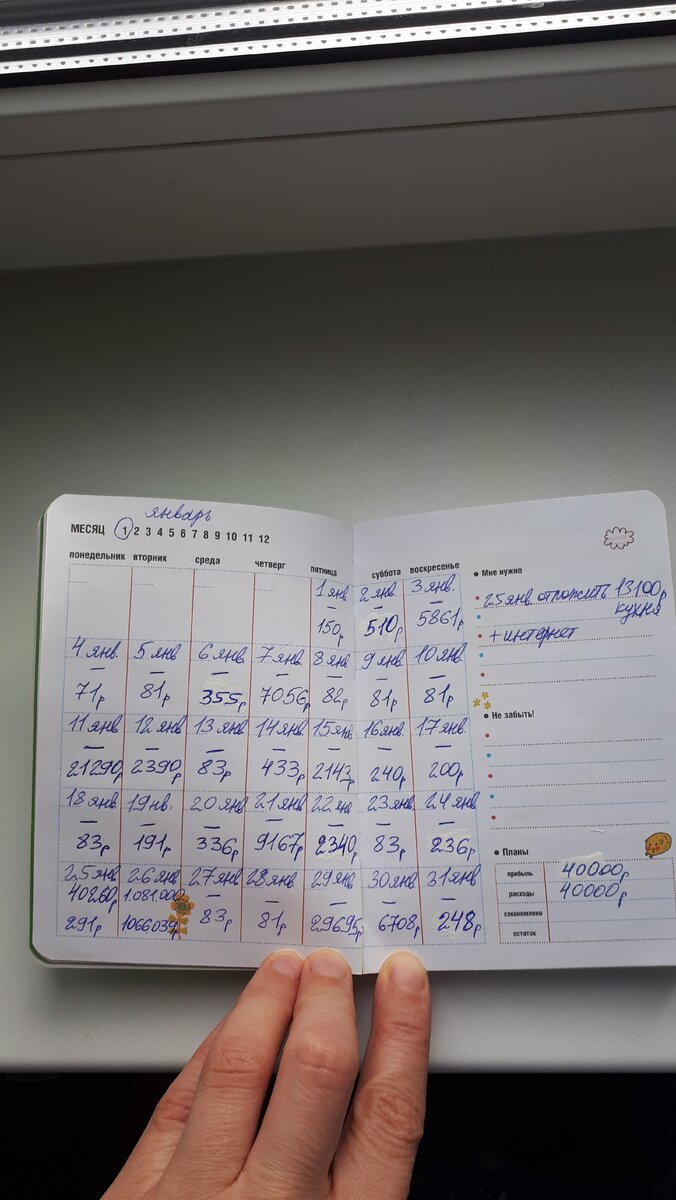 январь
МЕСЯЦ 1 2 3 4 5 6 7 8 9 10 11 12
понедельник вторник среда четверг пятница суббота воскресенье
1 янв 2 янв. 3 янв.
— — —
150р 510р 5861р
4 янв. 5 янв 6 янв 7 янв 8 янв 9 янв 10 янв
— — — — — — —
71р 81р 355р 7056р 82р 81р 81р
11 янв 12 янв 13 янв 14 янв 15 янв 16 янв 17 янв
— — — — — — —
21290р 2390р 83р 433р 2142р 240р 200р
18 янв 19 нв. 20 янв 21 янв 22 янв 23 янв 24 янв
— — — — — — —
83р 191р 336р 9167р 2340р 83р 236р
25 янв 26 янв 27 янв 28 янв 29 янв 30 янв 31 янв
40260р 1.081000 — — — — —
291р 1066039 83р 81р 29695р 6708р 248р
Мне нужно
25 янв отложить 13100р
кухня
+ интернет
Не забыть!
Планы
прибыль 40000р
расходы 40000р
сэкономлено
остаток